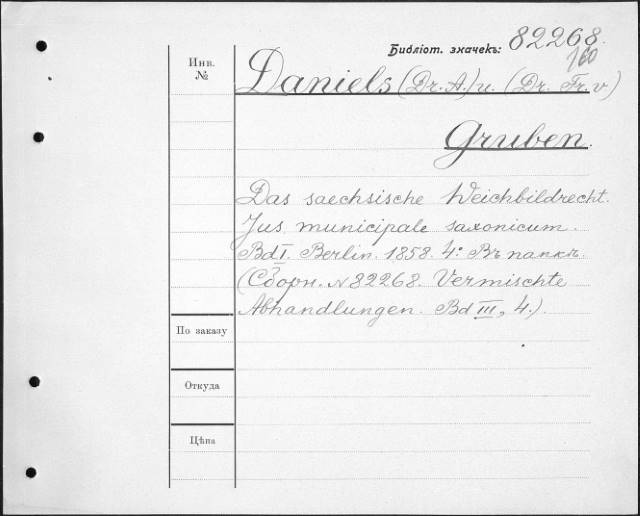 Библіот. значекъ: 82268.
160
Инв.
№
Daniels (Dr. A.) u. (Dr. Fr. v.)
Gruben.
Das saechsische Weichbildrecht.
Jus municipale saxonicum.
Bd I. Berlin. 1858. 4º Въ папкѣ.
(Сборн. № 82268. Vermischte
Abhandlungen. Bd III, 4.)
По заказу
Откуда
Цѣна